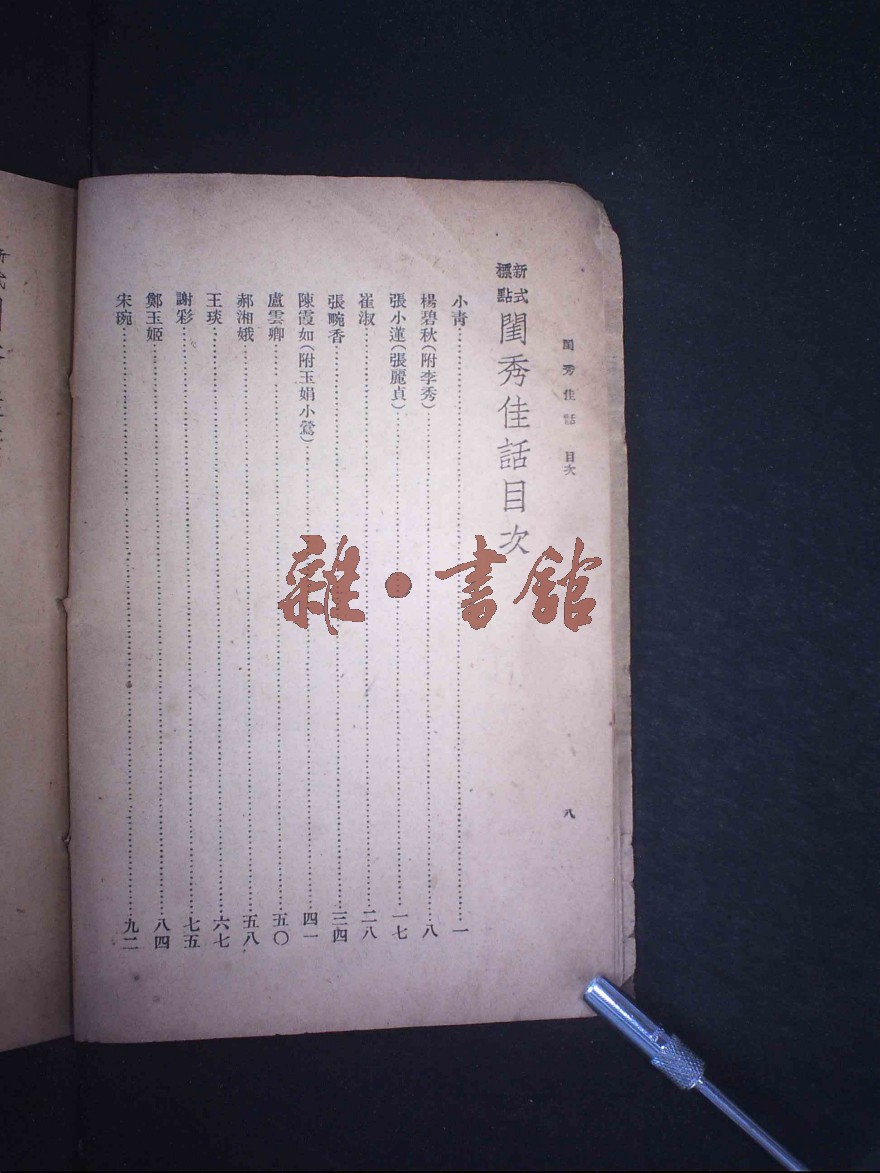 閨秀佳話 目次
八
新式標點 閨秀佳話目次
小青……一
楊碧秋(附李秀)……八
張小蓮(張麗貞)……一七
崔淑……二八
張畹香……三四
陳霞如(附玉娟小鶯)……四一
盧雲卿……五〇
郝湘娥……五八
王琰……六七
謝彩……七五
鄭玉姬……八四
宋琬……九二
雜·書館